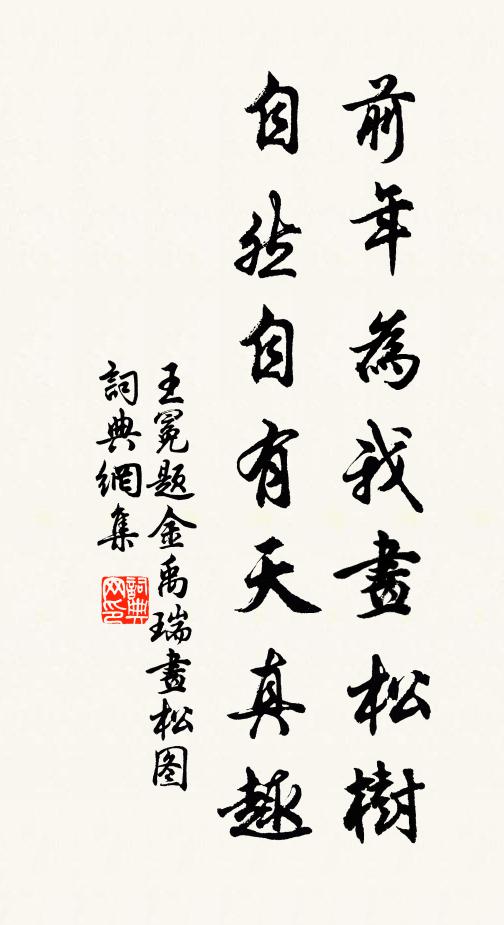 前年為我畫松樹
自然自有天真趣
王冕题金禹瑞畫松图
詞典網集
詞典网印